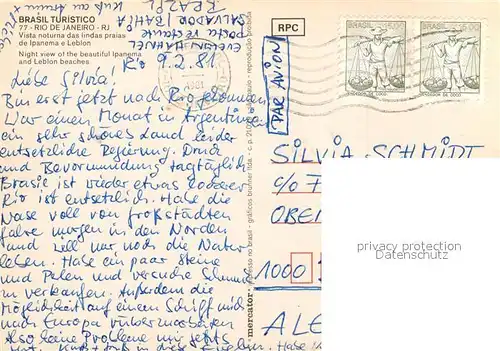 BRASIL TURÍSTICO
77 - RIO DE JANEIRO - RJ
Vista noturna das lindas praias
de Ipanema e Leblon
Night view of the beautiful Ipanema
and Leblon beaches
POSTE RESTANTE
SALVADOR BAHIA
BRAZIL
Rio 9.2.81
Liebe Silvia!
Bin erst jetzt nach Rio gekommen
War einen Monat in Argentinien
ein sehr schönes Land leider
entsetzliche Regierung. Druck
und Bevormundung tagtäglich
Brasie ist wieder etwas lockerer
Rio ist entsetzlich. Habe die
Nase voll von Großstädten
fahre morgen in den Norden
und will nur noch die Natur
leben. Habe ein paar Steine
und Perlen und versuche Schmuck
zu verkaufen. Außerdem die
Möglichkeit auf einem Schiff mich
nach Europa rüberzuarbeiten
Also keine Probleme mir geht's
mercator - impresso no brasil - gráficos brunner ltda. - c.p.
RPC
PAR AVION
BRASIL
BRASIL
SILVIA SCHMIDT
c/o F
OBE
1000
ALE
privacy protection
Datenschutz